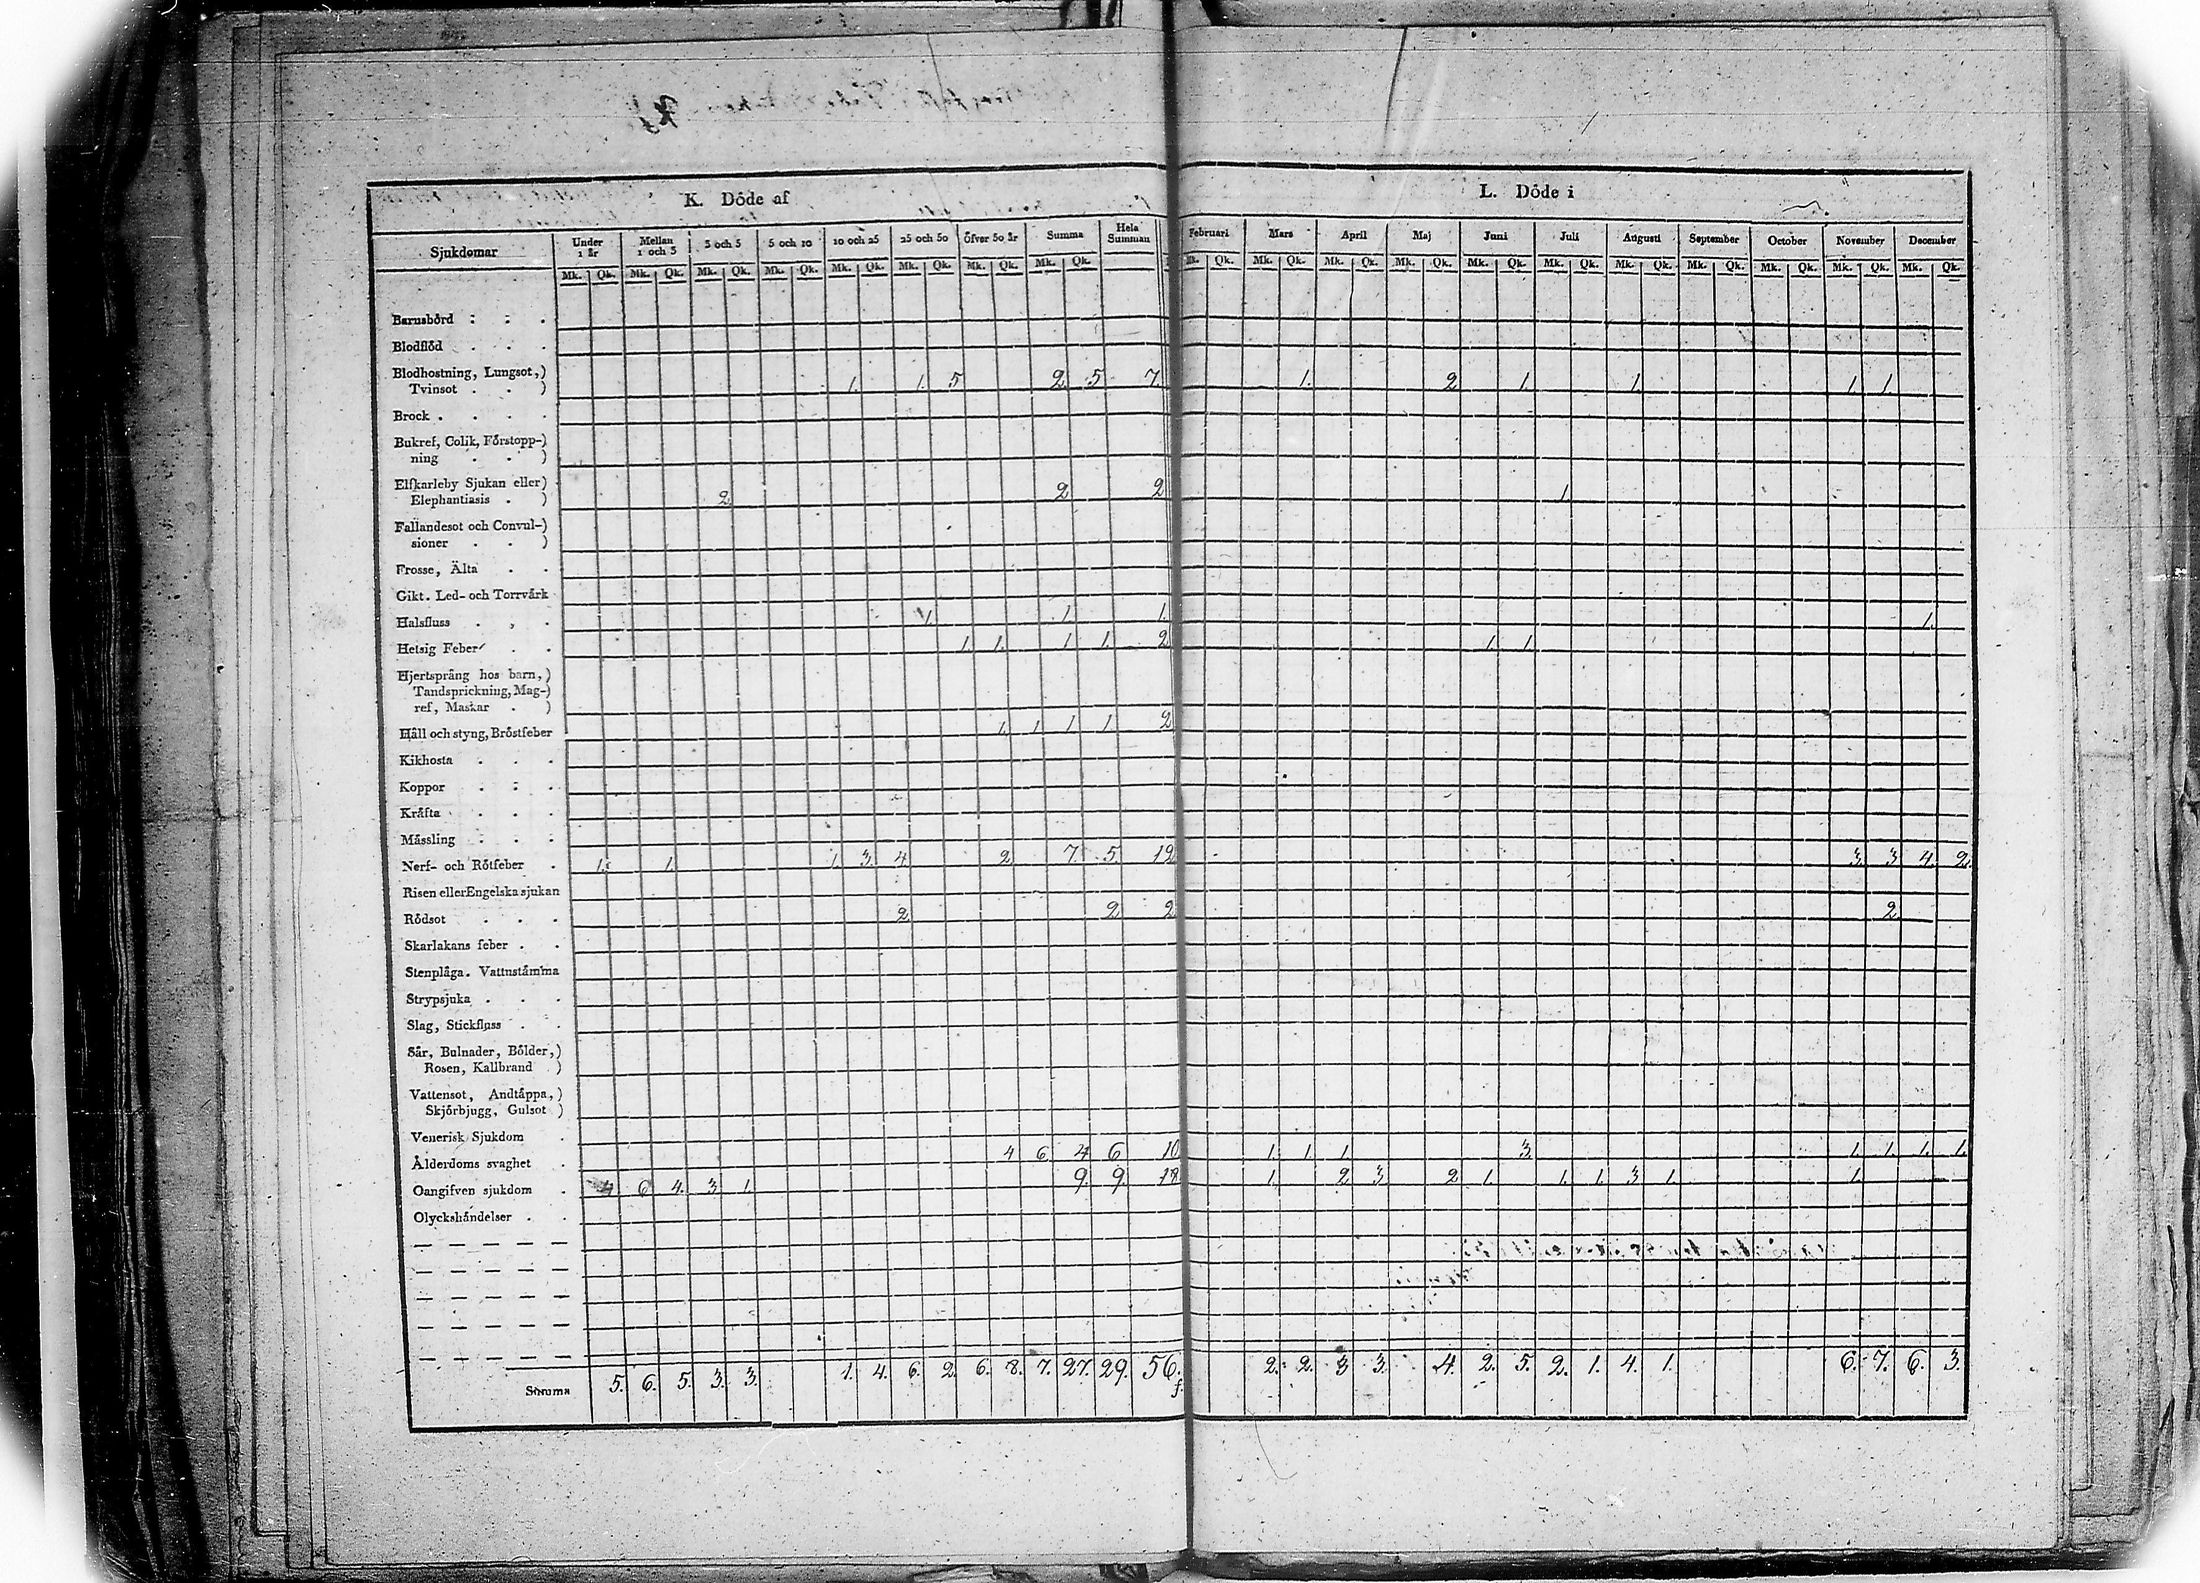 K. Döde af
L. Döde i
Sjukdomar
Under 1 år
Mellan 1 och 3
3 och 5
5 och 10
10 och 25
25 och 50
Öfver 50 år
Summa
Hela Summan
Februari
Mars
April
Maj
Juni
Juli
Augusti
September
October
November
December
Mk. Qk. Mk. Qk. Mk. Qk. Mk. Qk. Mk. Qk. Mk. Qk. Mk. Qk. Mk. Qk.
Mk. Qk. Mk. Qk. Mk. Qk. Mk. Qk. Mk. Qk. Mk. Qk. Mk. Qk. Mk. Qk. Mk. Qk. Mk. Qk. Mk. Qk.
Barnsbörd
Blodflöd
Blodhostning, Lungsot,)
Tvinsot . . ) 1. 1. 5 2. 5. 7. 1. 2 1. 1. 1. 1.
Brock
Bukref, Colik, Förstopp-)
ning . . )
Elfkarleby Sjukan eller)
Elephantiasis . ) 2 2 2 1.
Fallandesot och Convul-)
sioner . . )
Frosse, Älta
Gikt. Led- och Torrvärk
Halsfluss 1. 1. 1. 1.
Hetsig Feber 1. 1. 1. 1. 2 1. 1.
Hjertsprång hos barn,)
Tandsprickning, Mag-)
ref, Maskar . )
Håll och styng, Bröstfeber 1. 1. 1. 1. 2
Kikhosta
Koppor
Kräfta
Mässling
Nerf- och Rötfeber 1. 1. 1. 3. 4. 2. 7. 5. 12 3. 3. 4. 2.
Risen eller Engelska sjukan
Rödsot 2 2 2 2
Skarlakans feber
Stenplåga. Vattustämma
Strypsjuka
Slag, Stickfluss
Sår, Bulnader, Bölder,)
Rosen, Kallbrand )
Vattensot, Andtäppa,)
Skjörbjugg, Gulsot )
Venerisk Sjukdom
Ålderdoms svaghet 4 6 4 6 10 1. 1. 1. 3. 1. 1. 1. 1.
Oangifven sjukdom 4 6 4. 3. 1. 9. 9. 18 1. 2 3. 2 1. 1. 1. 3. 1. 1.
Olyckshändelser
Summa 5. 6. 5. 3. 3. 1. 4. 6. 2. 6. 8. 7. 27. 29. 56. 2. 2. 3 3. 4. 2. 5. 2. 1. 4. 1. 6. 7. 6. 3.